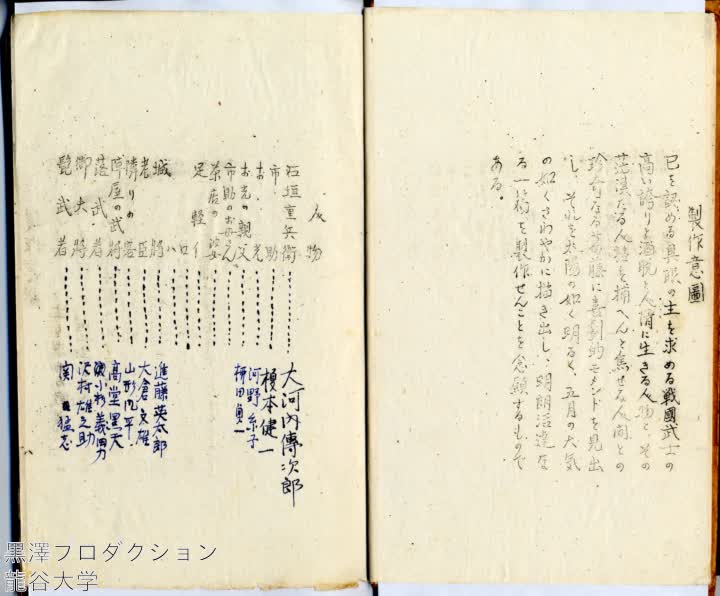 製作意圖
己を認める具眼の主を求める戰國武士の
高い誇りと洒脱と人情に生きる人物と、その
茫漠たる人物を捕へんと焦せる人間との
珍奇なる葛藤に喜劇的モメンドを見出
し、それを太陽の如く明るく、五月の大気
の如くさわやかに描き出し、明朗活達な
る一篇を製作せんことを念願するもので
ある。
人物
石垣重兵衛 大河内傳次郎
市助 榎本健一
お光 河野糸子
お光の親父 柳田貞一
市助のお母さん
茶店の婆
足軽 イ
ロ
ハ
城将 進藤英太郎
老臣 大倉文雄
隣りの客 山形凡平
陣屋の武将 高堂黒天
落武者 小杉義男
御大将 沢村雄之助
髭武者 猛志
黒澤プロダクション
龍谷大学